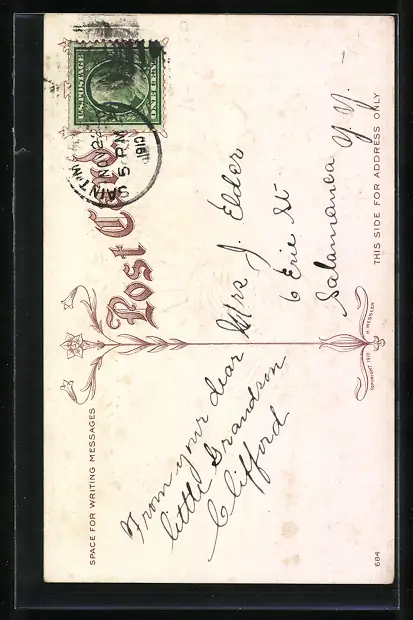 SPACE FOR WRITING MESSAGES
Post Card
THIS SIDE FOR ADDRESS ONLY
U.S. POSTAGE
ONE CENT
NOV 22
5 PM
1910
From your dear
little Grandson
Clifford
Mrs J. Elder
6 Erie St
Salamanca N.Y.
COPYRIGHT 1910 H. WESSLER
684